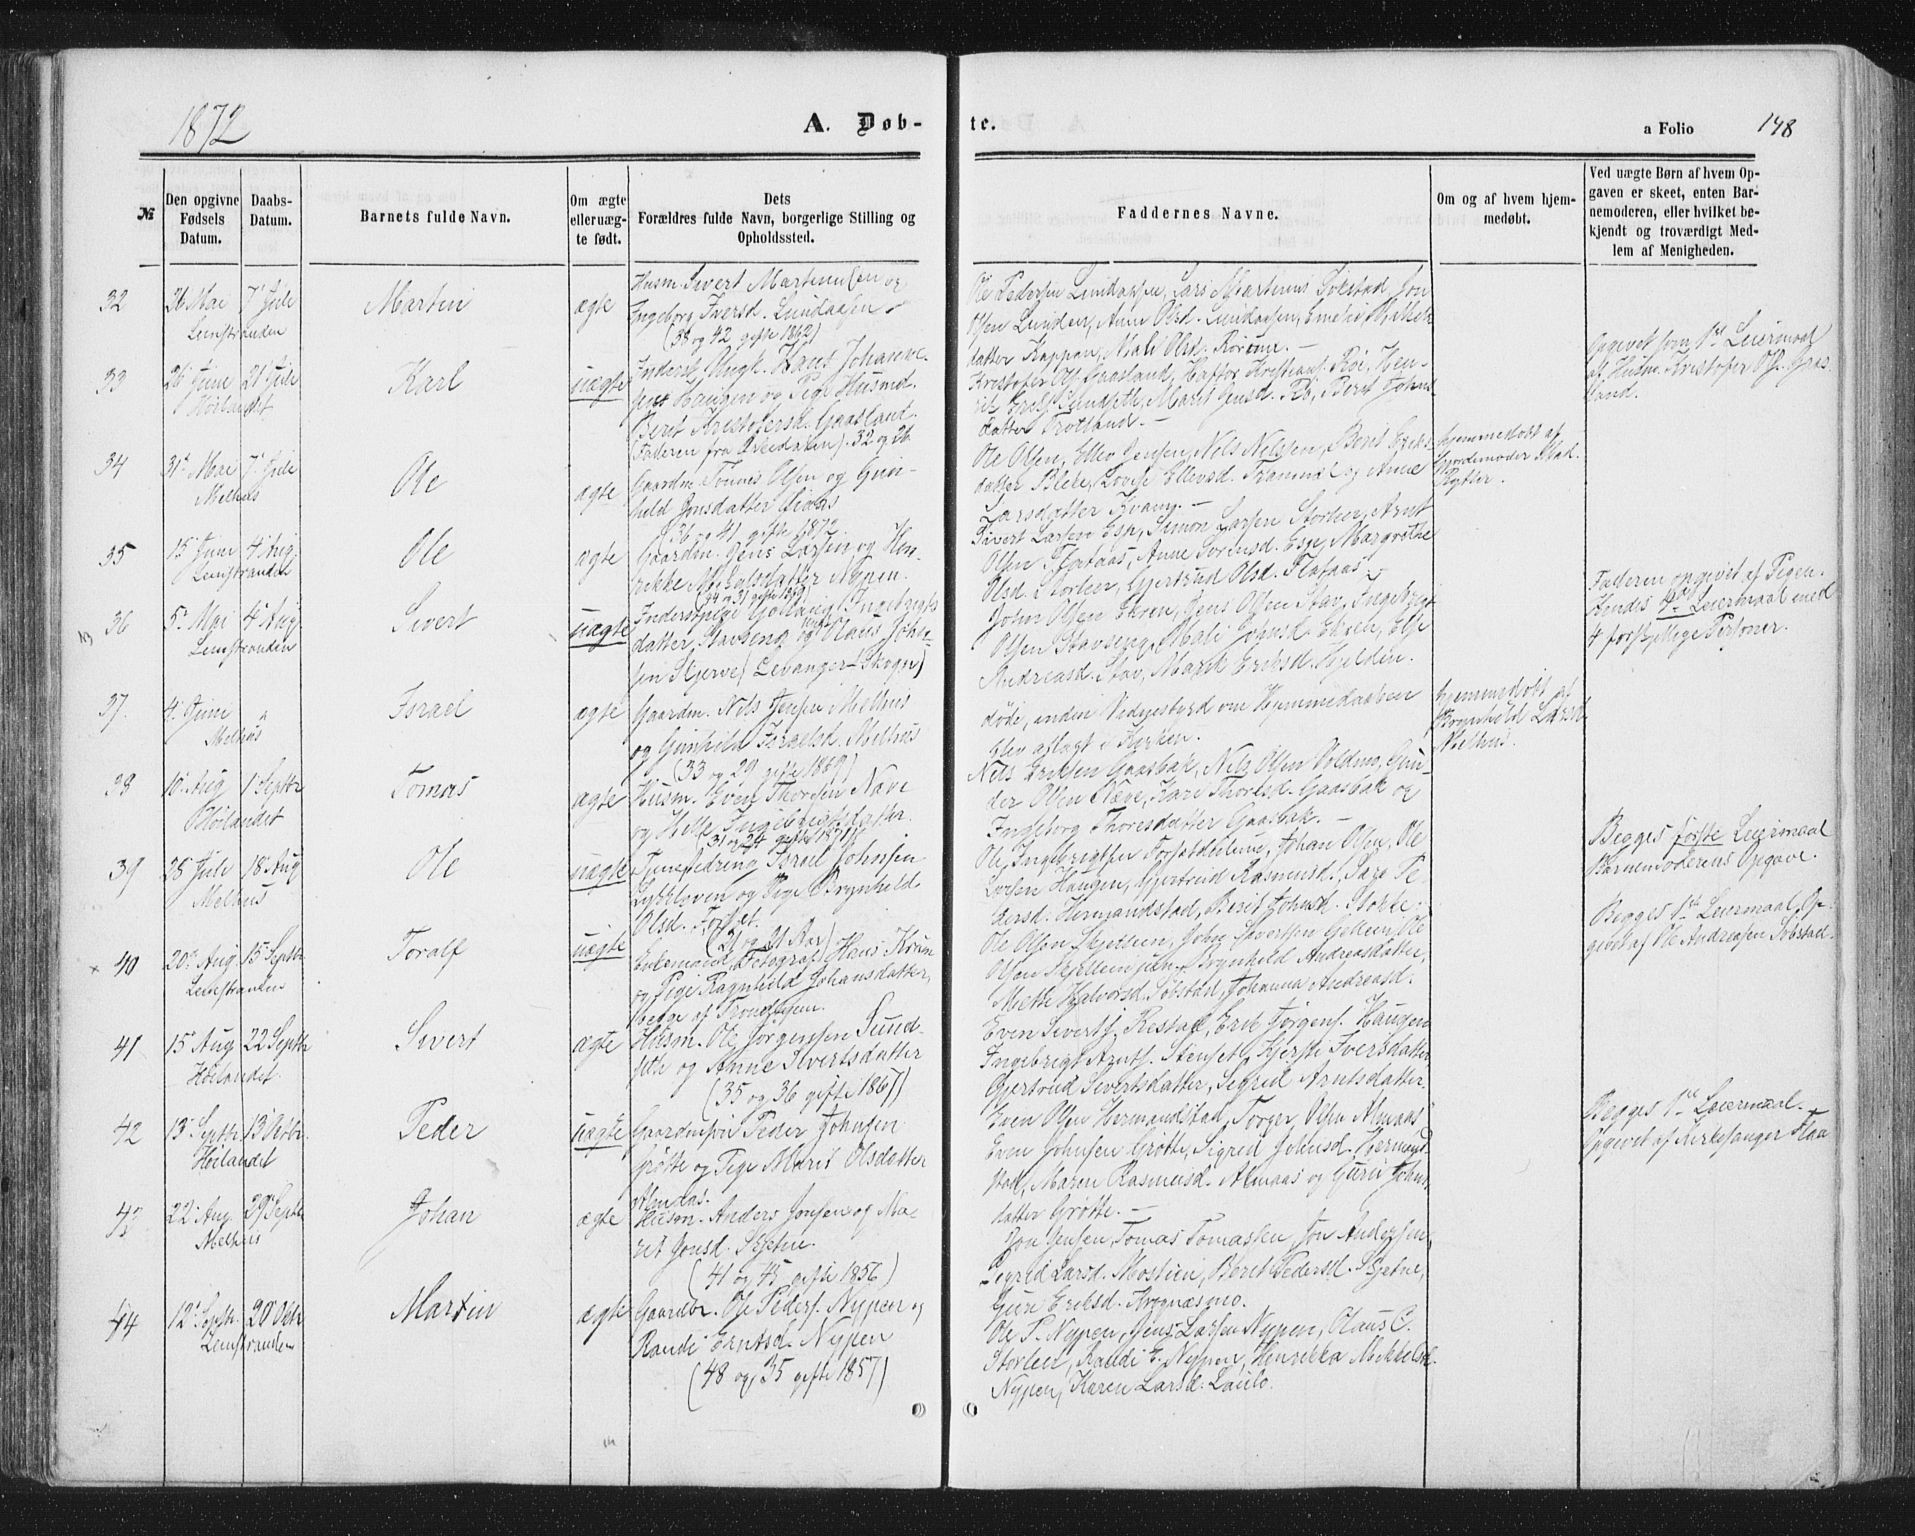 1872
A. Døb-
te.
a Folio 148
№
Den opgivne Fødsels Datum.
Daabs-Datum.
Barnets fulde Navn.
Om ægte eller uæg-te født.
Dets Forældres fulde Navn, borgerlige Stilling og Opholdssted.
Faddernes Navne.
Om og af hvem hjem-medøbt.
Ved uægte Børn af hvem Op-gaven er skeet, enten Bar-nemoderen, eller hvilket be-kjendt og troværdigt Med-lem af Menigheden.
32
26 Mai 7' Jule
Leinstranden
Martin
ægte
Husm. Sivert Martinussen og
Ingeborg Iversd. Lundaasen
(38 og 42 gifte 1862)
Ole Pedersen Lundaasen, Lars Martinus Sobstad, Jon
Olsen Lunden, Anne Olsd. Lundaasen,
datter Kappen, Mali Olsd.
33
26 Juni 21' Jule
Høilandet
Karl
uægte
Hans Johanne-
sen Haugen og Pige Husmd.
Berit Kristofersd. Gaasland.
(Faderen fra Ørkedalen). 32 og 26
Kristofer Ols. Gaasland, Haftor Kristians. Rø, Hen-
rik Eriks. Sundseth, Marit Jensd. Rø, Berit Johns
datter Trotland. –
Opgivet som 1ste Leiermaal
af Husm. Kristofer Ols. Gaas
land.
34
31' Mai 7' Jule
Melhus
Ole
ægte
Gaardm. Tønnes Olsen og Gun-
hild Jonsdatter
36 og 41 gifte 1872.
Ole Olsen, Ellev Jensen, Nels Nelssen, Berit Eriks
datter Blekë, Lovise Ellevsd. Trammel og Anne
Larsdatter Kvam. –
hjemmedøbt af
Jordemoder Mad.
Rytter.
35
15 Juni 4' Aug
Leinstranden
Ole
ægte
Gaardm. Jens Larsen og Hen-
rikke Mikkelsdatter Nypen.
(44 og 31 gifte 1869)
Sivert Larsen Esp, Simon Larsen Storler, Arnt
Olsen Flataas, Anne Sørensd. Esp, Margrethe
Olsd. Storler, Gjertrud Olsd. Flataas. –
36
5' Mai 4' Aug
Leinstranden
Sivert
uægte
Inderstpige Ingebrigts
datter, Stavseng og Olaus Johan-
sen Skjerve (Levanger-Skogn)
John Olsen Ekren, Jens Olsen Stav, Ingebrigt
Olsen Stavseng, Mali Johnsd. Ekren, Else
Andreasd. Stav, Marit Eriksd. Kjelden.
Faderen opgivet af Pigen.
Hendes 4de Leiermaal med
4 forskjellige Personer.
37
4' Juni "
Melhus
Israel
ægte
Gaardm. Nils Jensen Melhus
og Gunhild Israelsd. Melhus
(33 og 29 gifte 1869)
døde, inden Vidnesbyrd om Hjemmedaaben
blev aflagt i Kirken.
hjemmedøbt af
Brynhild Larsd.
Melhus.
38
10' Aug 1' Septbr
Høilandet
Tomas
ægte
Husm. Even Thorsen Næve
og Ingebrigtsdatter.
(31 og 24 gifte 1871)
Nils Eriksen Gaasbak, Nils Olsen Volden, Gun-
der Olsen Næve, Kari Thoresd. Gaasbak og
Ingeborg Thoresdatter Gaasbak. –
39
28' Jule 18' Aug
Melhus
Ole
uægte
Tjenestedreng Israel Johnsen
og Pige Brynhild
Olsd.
(21 og 21 Aar)
Ole Ingebrigtsen Johan Olsen, Ole
Larsen Haugen, Gjertrud Rasmusd., Sare Pe-
dersd. Hermandstad, Berit Johnsd. Stokke.
Begges første Leiermaal
Barnemoderens Opgave.
40
20' Aug. 15' Septbr
Leinstranden
Toralf
uægte
Enkemand Fotograf Hans Krum
og Pige Ragnhild Johansdatter,
begge af Trondhjem.
Ole Olsen Skjellein, John Sivertsen Gellein, Ole
Olsen Skjellein jun, Brynhild Andreasdatter,
Mette Halvorsd. Sobstad, Johanna Andreasd.
Begges 1ste Leiermaal. Op-
givet af Ole Andreasen Sobstad.
41
15' Aug 22 Septbr
Høilandet.
Sivert
ægte
Husm. Ole Jørgensen Sund-
seth og Anne Sivertsdatter
(35 og 36 gifte 1867)
Even Siverts. Restad, Erik Jørgens. Haugen
Ingebrigt Arnts. Stenset, Kjersti Iversdatter,
Gjertrud Sivertsdatter, Sigrid Arntsdatter.
42
13' Septbr 13' Octbr.
Høilandet
Peder
uægte
Gaardmsøn Peder Johnsen
Grøtte og Pige Marit Olsdatter
Almaas.
Even Olsen Hermandstad, Torger Olsen Almaas,
Even Johnsen Grøtte, Sigrid Johnsd. Hermand
stad, Maren Rasmusd. Almaas og Guru Johns
datter Grøtte. –
Begges 1ste Leiermaal.
Opgivet af Kirkesanger Flaa
43
22' Aug. 29' Septbr
Melhus
Johan
ægte
Husm. Anders Jonsen og Ma-
rit Jonsd. Skjetne.
(41 og 45 gifte 1856)
Jon Jensen, Tomas Tomassen, Jon Andersen,
Sigrid Larsd. Mostien, Beret Pedersd. Skjetne,
Guri Eriksd. Krognæsmo.
44
12' Septbr. 20' Octbr
Leinstranden
Martin
ægte
Gaardbr. Ole Peders. Nypen og
Randi Erntsd. Nypen
(48 og 35 gifte 1857)
Ole P. Nypen, Jens Larsen Nypen, Olaus C.
Storler, Randi E. Nypen, Henrikka Mikkelsd.
Nypen, Karen Larsd. Laulo.